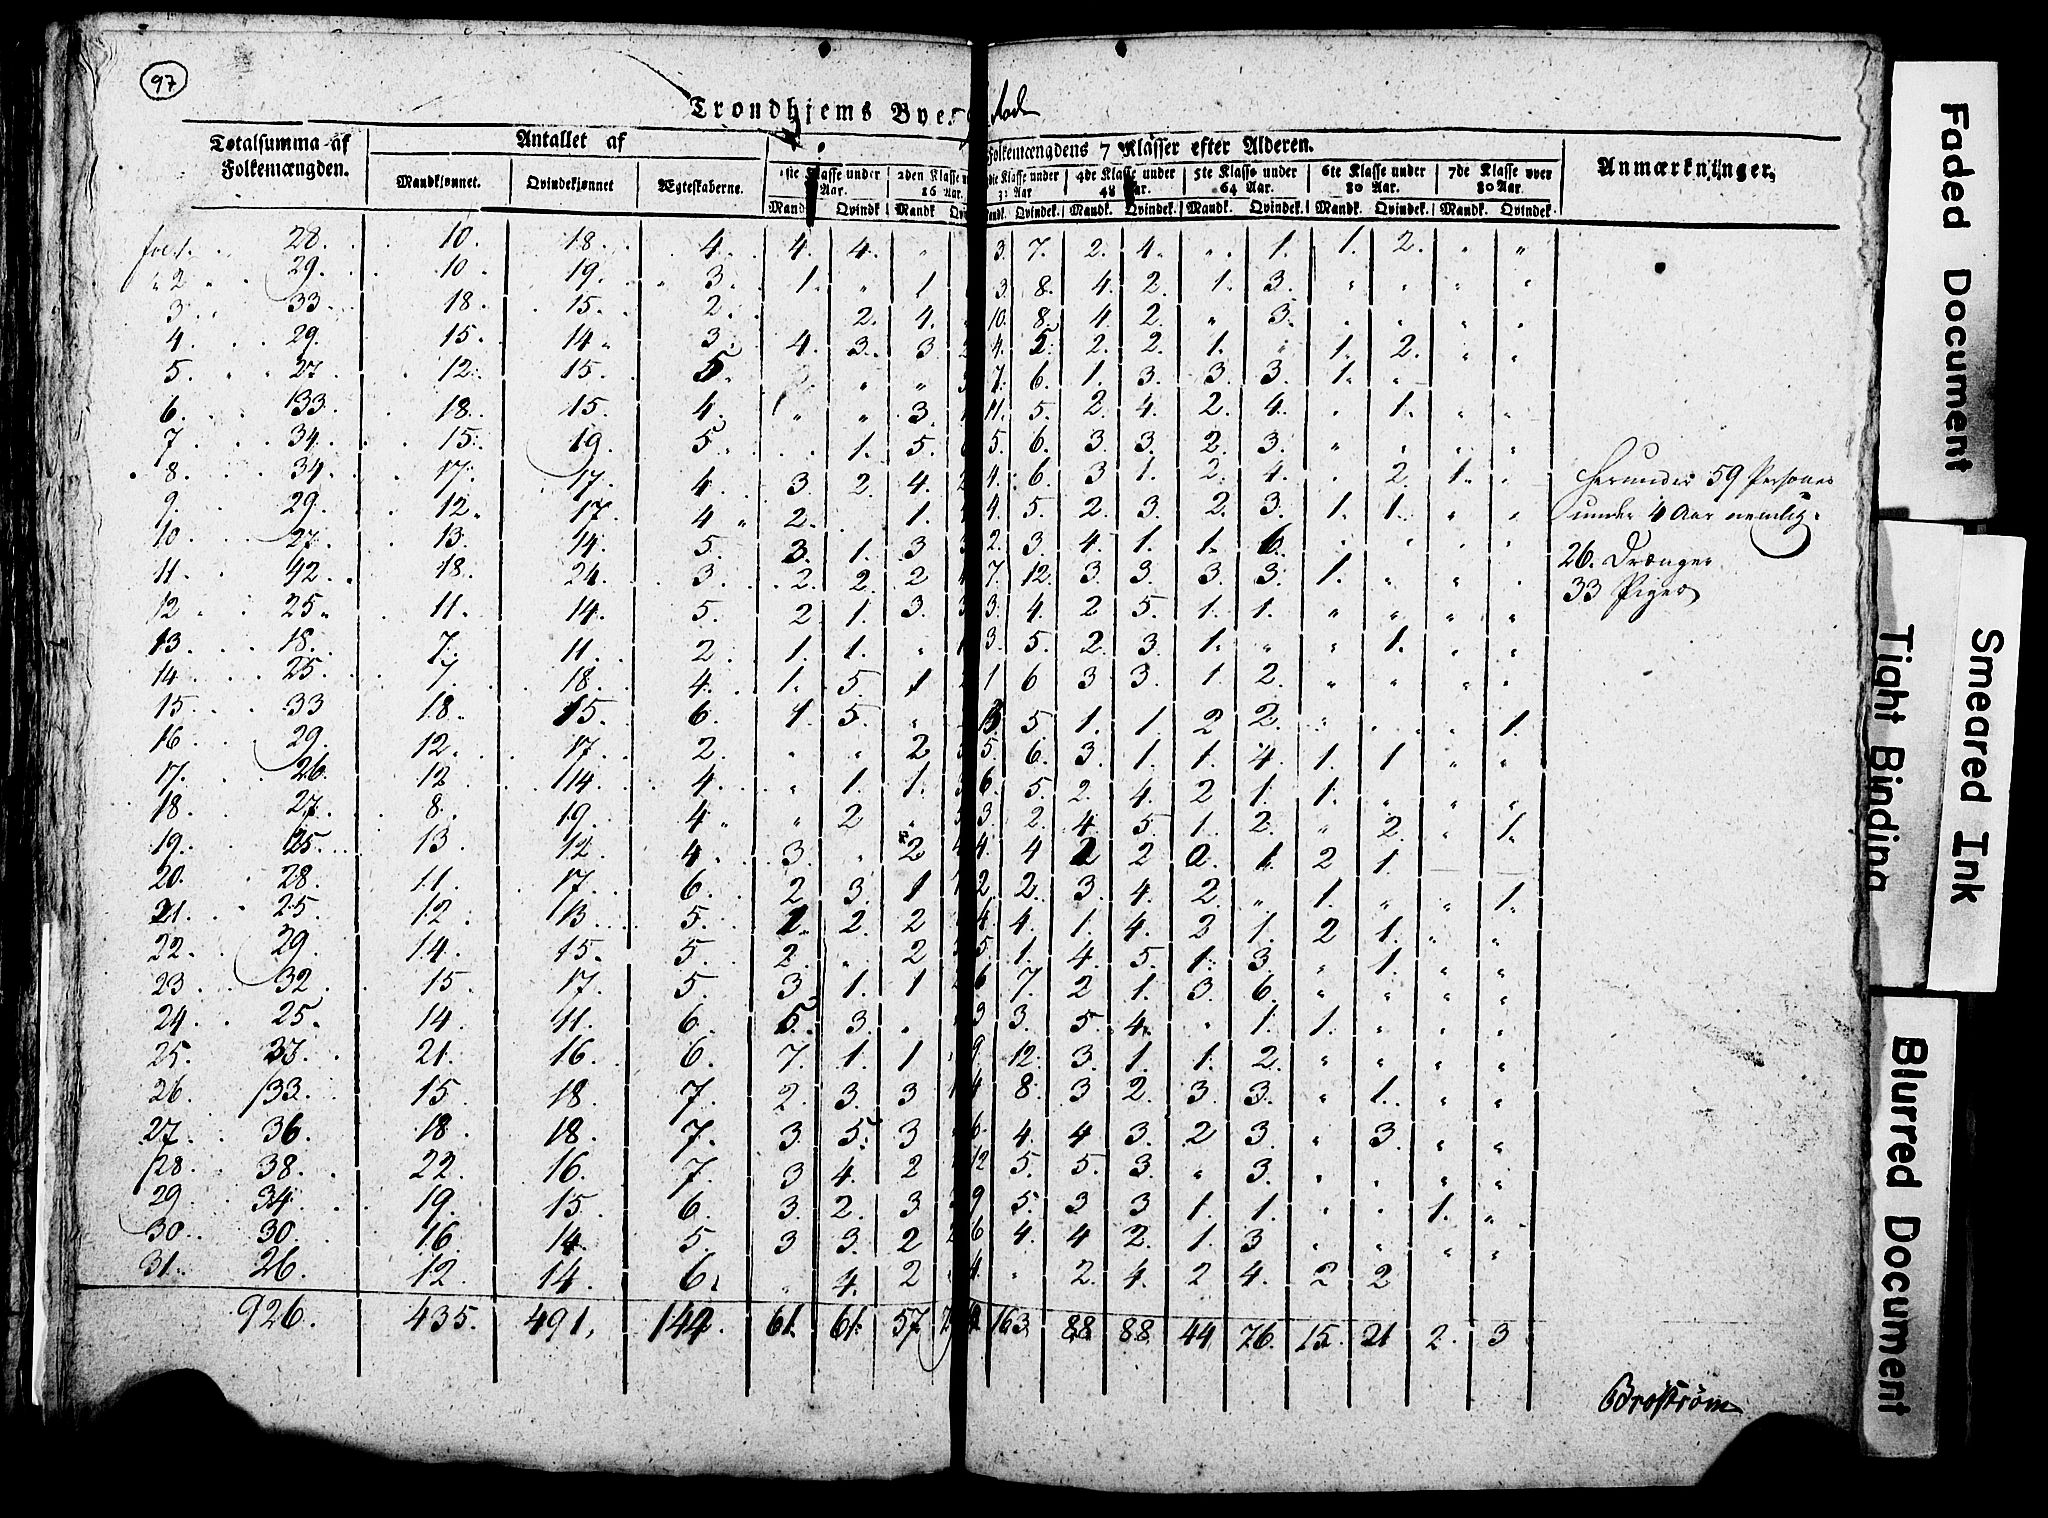 97
Trondhjems Bye
Totalsumma af Folkemængden. Antallet af Folkemængdens 7 Klasser efter Alderen. Anmærkninger.
Mandkjønnet. Qvindekjønnet Ægteskaberne. 1ste Klasse under Aar. 2den Klasse 16 Aar. 3die Klasse under 32 Aar 4de Klasse under 48 Aar. 5te Klasse under 64 Aar. 6te Klasse under 80 Aar. 7de Klasse over 80 Aar.
Mandk Qvindk Mandk Mandk. Qvindek. Mandk. Qvindek. Mandk. Qvindek. Mandk. Qvindek. Mandk. Qvindek.
fol. 1. 28. 10. 18. 4. 4. 4. " 3. 7. 2. 4. " 1. 1. 2. " "
" 2 29. 10. 19. 3. 1. " 1 3. 8. 4. 2. 1. 3. " " " "
3. 33 18. 15. 2. 2. 4. 10. 8. 4. 2. " 3. " " " "
4. 29. 15. 14. 3. 4. 3. 3 4. 5. 2. 2. 1. " 1. 2. " "
5. 27. 12. 15. 5. " " 7. 6. 1. 3. 3. 3. 1. "
6. 33. 18. 15. 4. " " 3. 11. 5. 2. 4. 2. 4. " 1. " "
7 34. 15. 19. 5. 1. 5. 5. 6. 3 3. 2. 3. " " " "
8. 34. 17. 17. 4. 3. 2. 4. 4. 6. 3 1. 2. 4. " 2. 1. "
9. 29. 12. 17. 4 2. 1. 4. 5. 2. 3. 2. 3. 1. 1. " "
10. 27. 13. 14. 5. 3. 1. 3 2. 3. 4. 1. 1. 6. " " " "
11. 42. 18. 24. 3. 2. 2. 2 7. 12. 3. 3. 3. 3. 1. " " "
12 25 11. 14. 5. 2 1. 3. 3. 4. 2 5. 1. 1. " " " "
13. 18. 7. 11. 2. 1. 1. " 3. 5. 2. 3. 1. " " 1. " "
14. 25. 7. 18. 4. 1. 5. 1 1 6 3 3. 1. 2. " " " "
15. 33 18. 15. 6. 1. 5. " 13 5. 1. 1. 2 2. " " " 1.
16 29. 12. 17. 2. " " 2 5. 6. 3. 1. 1. 4. 1. 1 " "
17. 26. 12 14. 4. " 1. 1. 6. 5. 2. 4. 2 1. 1. " " "
18. 27. 8. 19. 4 " 2 " 3. 2. 4. 5. 1. 2. " 2. " 1.
19. 25. 13. 12. 4. 3. " 2 4. 4 2 2 2. 1. 2 1.
20. 28. 11. 17. 6. 2 3. 1 2 2. 3. 4. 2. " 1. " " 1.
21. 25. 12. 13. 5. 1. 2. 2 4. 4. 1. 4. 2 1. 2 1. " "
22. 29. 14. 15. 5. 2. " 2 5. 1. 4. 5. 1. 3. " 1. " "
23. 32. 15. 17. 5. 3 1. 1 6 7. 2 1. 3. 6. " " " "
24. 25. 14. 11. 6. 5. 3. " 3 3. 5. 4. " 1. 1. " " "
25. 37. 21. 16. 6. 7. 1. 1 9. 12. 3. 1. 1. 2. " " " "
26. 33. 15. 18. 7. 2. 3. 3 4 8. 3 2. 3. 3. " 1. " "
27. 36. 18. 18. 7. 3. 5. 3 6. 4. 4 3. 2 3. " 3. " "
28. 38. 22. 16. 7. 3 4. 2 12 5. 5. 3. " 3. " " " "
29. 34. 19. 15. 6. 3. 2. 3. 9 5. 3 3 1. 1. " " 1. "
30. 30. 16. 14. 5. 3 3. 2 6 4. 4 2. 1. 3 " " " "
31. 26. 12. 14. 6. " 4. 2 4. " 2. 4. 2 4. 2 2
926. 435. 491. 144. 61. 61. 57 163. 88. 88. 44 76. 15. 21 2. 3
herunder 59 Personer
under 4 Aar nemlig:
26. Drænger
33 Piger
Broström
Faded Document
Tight Binding
Smeared Ink
Blurred Document